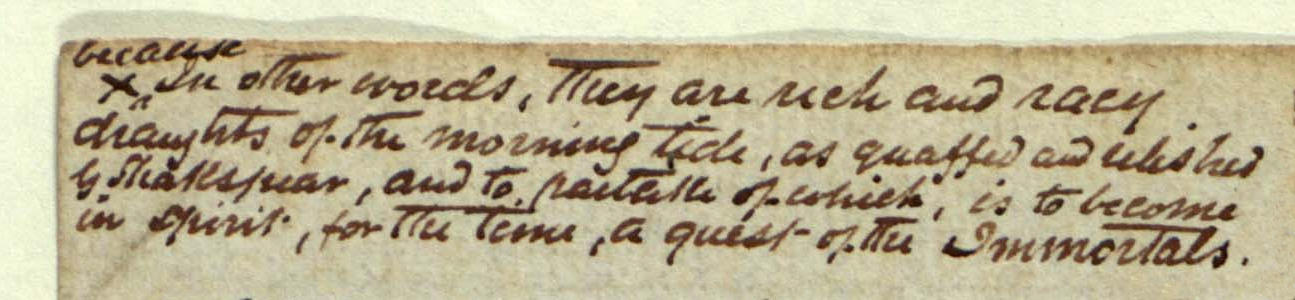 because
x in other words, they are rich and racy
draughts of the morning tide, as quaffed and relished
by Shakspear, and to partake of which, is to become
in spirit, for the time, a guest of the Immortals.